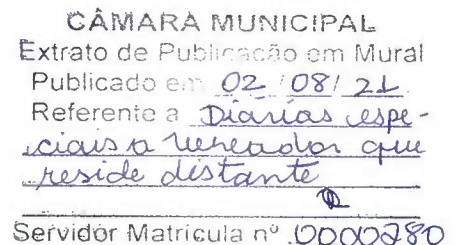 CÂMARA MUNICIPAL
Extrato de Publicação em Mural
Publicado em 02/08/21
Referente a Diárias espe-
ciais a vereador que
reside distante
Servidor Matrícula nº 0000280